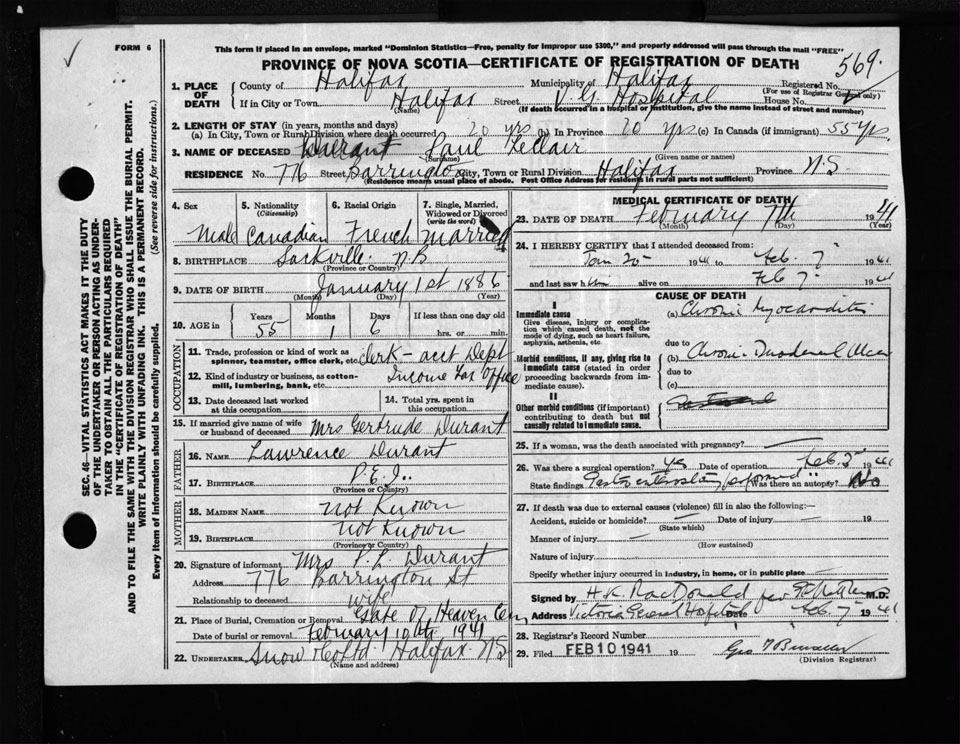 FORM 6
This form if placed in an envelope, marked "Dominion Statistics—Free, penalty for improper use $300," and properly addressed will pass through the mail "FREE"
PROVINCE OF NOVA SCOTIA—CERTIFICATE OF REGISTRATION OF DEATH
569.
1. PLACE OF DEATH
County of Halifax Municipality of Halifax Registered No.
(For use of Registrar General only)
If in City or Town Halifax Street V. G. Hospital House No.
(Name) (If death occurred in a hospital or institution, give the name instead of street and number)
2. LENGTH OF STAY (in years, months and days)
(a) In City, Town or Rural Division where death occurred 20 yrs (b) In Province 20 yrs (c) In Canada (if immigrant) 55 yrs
3. NAME OF DECEASED Durant Paul
(Surname) (Given name or names)
RESIDENCE No. 776 Street Barrington City, Town or Rural Division Halifax Province N.S
(Residence means usual place of abode. Post Office Address for residents in rural parts not sufficient)
4. Sex
5. Nationality (Citizenship)
6. Racial Origin
7. Single, Married, Widowed or Divorced (write the word)
Male Canadian French Married
8. BIRTHPLACE Sackville N.B
(Province or Country)
9. DATE OF BIRTH January 1st 1886
(Month) (Day) (Year)
10. AGE in Years Months Days If less than one day old
55 1 6 hrs. or min.
OCCUPATION
11. Trade, profession or kind of work as spinner, teamster, office clerk, etc. Clerk - acct Dept
12. Kind of industry or business, as cotton-mill, lumbering, bank, etc. Income Tax Office
13. Date deceased last worked at this occupation
14. Total yrs. spent in this occupation
15. If married give name of wife or husband of deceased Mrs Gertrude Durant
FATHER
16. Name Lawrence Durant
17. BIRTHPLACE P.E.I.
(Province or Country)
MOTHER
18. MAIDEN NAME Not Known
19. BIRTHPLACE Not Known
(Province or Country)
20. Signature of informant Mrs P. L Durant
Address 776 Barrington St
Relationship to deceased wife
21. Place of Burial, Cremation or Removal Gate Of Heaven Cem
Date of burial or removal February 10th 1941
22. UNDERTAKER Snow & Co Ltd Halifax N.S
(Name and address)
MEDICAL CERTIFICATE OF DEATH
23. DATE OF DEATH February 7th 1941
(Month) (Day) (Year)
24. I HEREBY CERTIFY that I attended deceased from:
Jan 25 1941 to Feb. 7 1941
and last saw him alive on Feb 7 1941
CAUSE OF DEATH
I
Immediate cause
Give disease, injury or complication which caused death, not the mode of dying, such as heart failure, asphyxia, asthenia, etc.
(a) Chronic Myocarditis
due to
Morbid conditions, if any, giving rise to immediate cause (stated in order proceeding backwards from immediate cause).
(b) Chronic Duodenal Ulcer
due to
(c)
II
Other morbid conditions (if important) contributing to death but not causally related to immediate cause.
25. If a woman, was the death associated with pregnancy?
26. Was there a surgical operation? yes Date of operation Feb. 5 1941
State findings Gastroenterostomy performed Was there an autopsy? No
27. If death was due to external causes (violence) fill in also the following:—
Accident, suicide or homicide? Date of injury 19
(State which)
Manner of injury
(How sustained)
Nature of injury
Specify whether injury occurred in industry, in home, or in public place
Signed by H K MacDonald per M.D.
Address Victoria General Hospital Date Feb. 7 1941
28. Registrar's Record Number
29. Filed FEB 10 1941 19
(Division Registrar)
SEC. 46—VITAL STATISTICS ACT MAKES IT THE DUTY OF THE UNDERTAKER OR PERSON ACTING AS UNDERTAKER TO OBTAIN ALL THE PARTICULARS REQUIRED IN THE "CERTIFICATE OF REGISTRATION OF DEATH" AND TO FILE THE SAME WITH THE DIVISION REGISTRAR WHO SHALL ISSUE THE BURIAL PERMIT.
WRITE PLAINLY WITH UNFADING INK. THIS IS A PERMANENT RECORD.
Every item of Information should be carefully supplied. (See reverse side for instructions.)